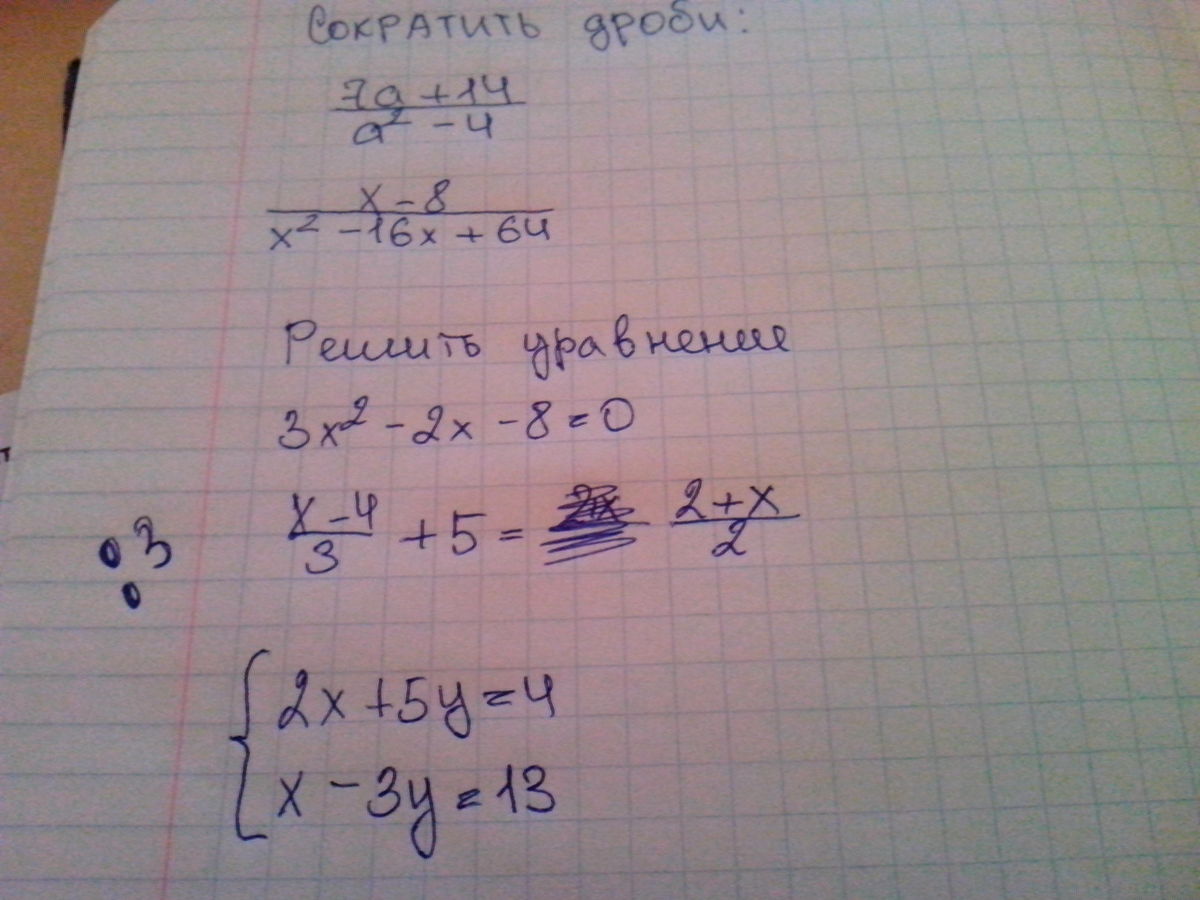 Сократить дроби:
7a + 14
a² - 4
x - 8
x² - 16x + 64
Решить уравнение
3x² - 2x - 8 = 0
x - 4
3
+ 5 =
2 + x
2
3
2x + 5y = 4
x - 3y = 13